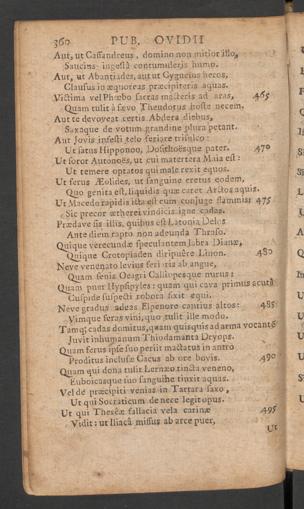 360 PUB. OVIDII
Aut, ut Cassandreus, domino non mitior illo,
Saucius ingestâ contumuleris humo.
Aut, ut Abantiades, aut ut Cygneius heros,
Clausus in æquoreas præcipiteris aquas.
Victima vel Phœbo sacras macteris ad aras, 465
Quam tulit à sævo Theudotus hoste necem.
Aut te devoveat certis Abdera diebus,
Saxaque de votum grandine plura petant.
Aut Jovis infesti telo feriare trisulco:
Ut satus Hipponoo, Dosithoësque pater. 470
Ut soror Autonoës, ut cui matertera Maia est:
Ut temere optatos qui male rexit equos.
Ut ferus Æolides, ut sanguine cretus eodem,
Quo genita est, liquidis quæ caret Arctos aquis.
Ut Macedo rapidis icta est cum conjuge flammis: 475
Sic precor ætherei vindicis igne cadas.
Prædave sis illis, quibus est Latonia Delos
Ante diem rapto non adeunda Thraso.
Quique verecundæ speculantem labra Dianæ,
Quique Crotopiaden diripuère Linon. 480
Neve venenato levius feriaris ab angue,
Quam senis Oeagri Calliopesque nurus:
Quam puer Hypsipyles: quam qui cava primus acutâ
Cuspide suspecti robora fixit equi.
Neve gradus adeas Elpenore cautius altos: 485
Vimque feras vini, quo tulit ille modo.
Tamq; cadas domitus, quam quisquis ad arma vocantē
Juvit inhumanum Thiodamanta Dryops.
Quam ferus ipse suo periit mactatus in antro
Proditus inclusæ Cacus ab ore bovis. 490
Quam qui dona tulit Lernæo tincta veneno,
Euboicasque suo sanguine tinxit aquas.
Vel de præcipiti venias in Tartara saxo,
Ut qui Socraticum de nece legit opus.
Ut qui Theseæ fallacia vela carinæ 495
Vidit: ut Iliacâ missus ab arce puer,
Ut